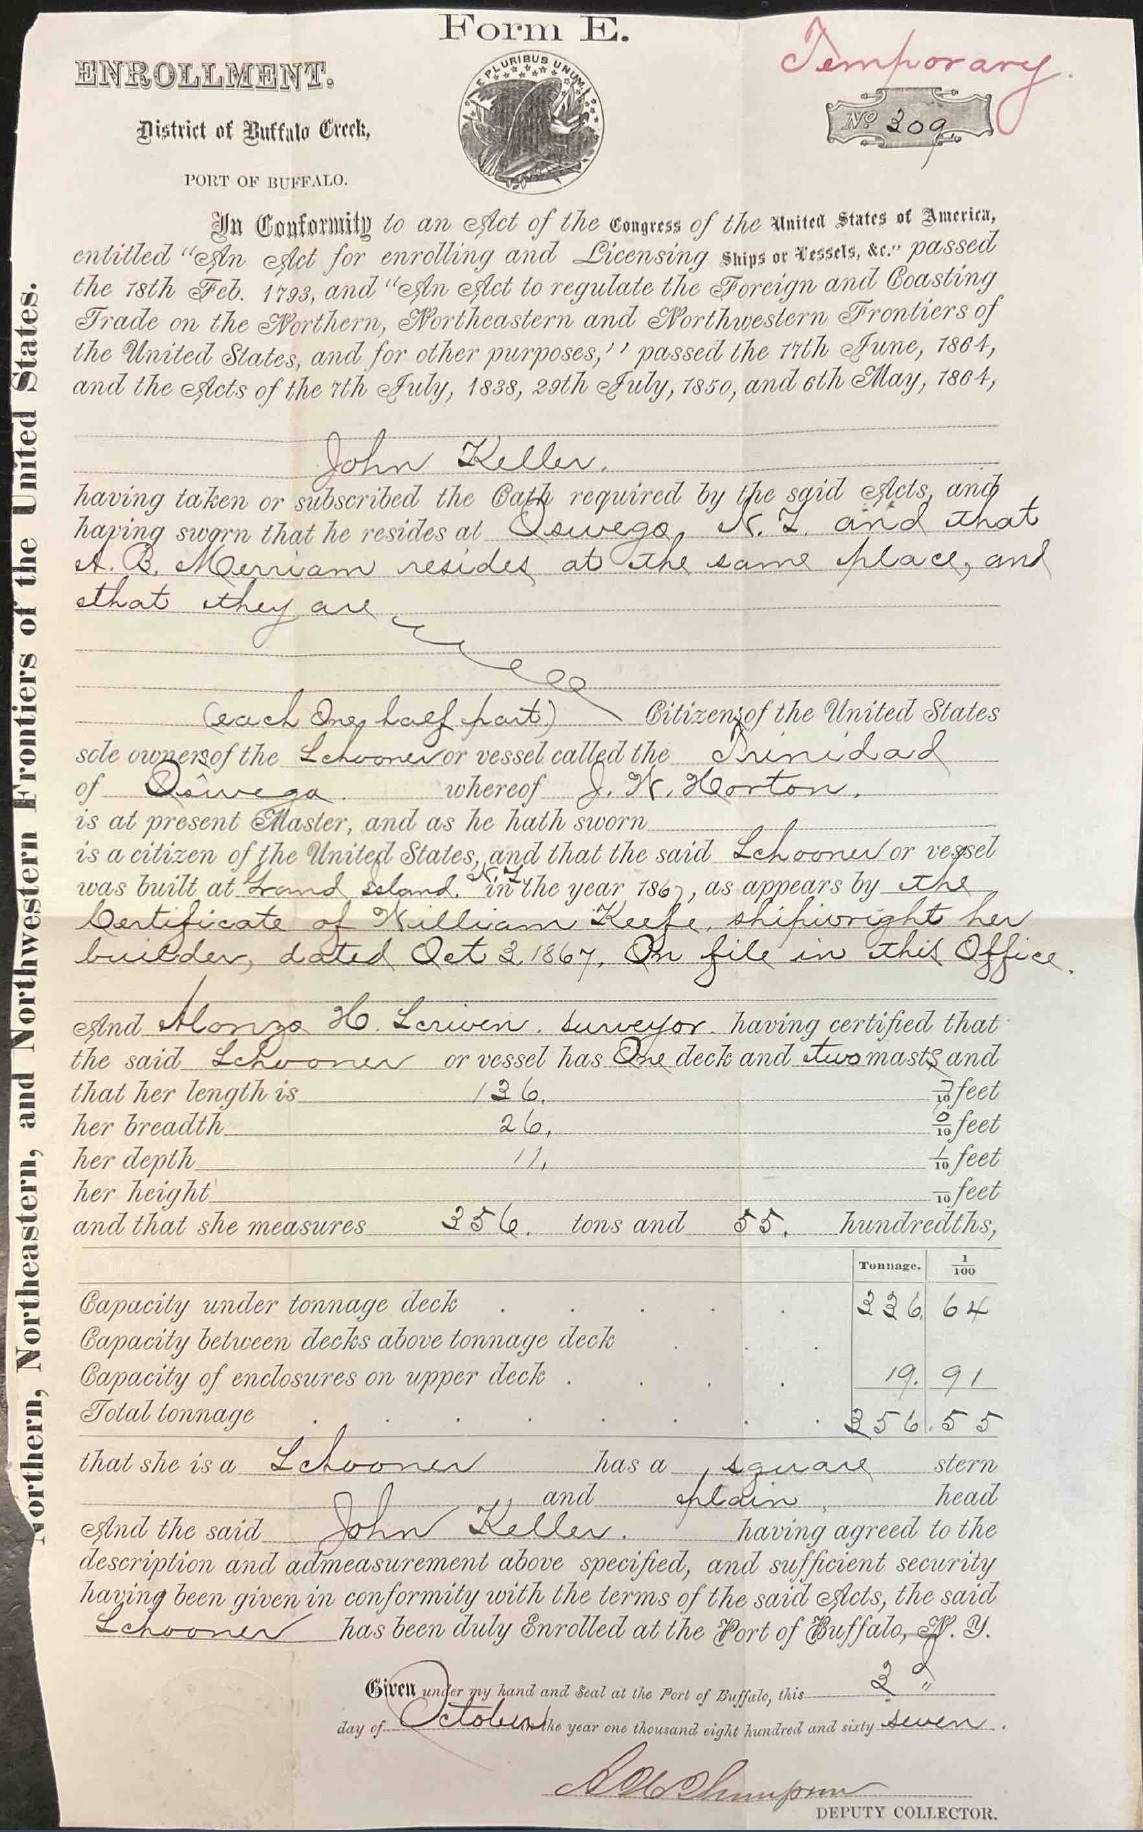 Form E.
Temporary.
ENROLLMENT.
E PLURIBUS UNUM
No 309
District of Buffalo Creek,
PORT OF BUFFALO.
In Conformity to an Act of the Congress of the United States of America,
entitled "An Act for enrolling and Licensing Ships or Vessels, &c." passed
the 18th Feb. 1793, and "An Act to regulate the Foreign and Coasting
Trade on the Northern, Northeastern and Northwestern Frontiers of
the United States, and for other purposes," passed the 17th June, 1864,
and the Acts of the 7th July, 1838, 29th July, 1850, and 6th May, 1864,
John Keller.
having taken or subscribed the Oath required by the said Acts, and
having sworn that he resides at Oswego, N.Y. and that
A. B. Merriam resides at the same place, and
that they are
(each One half part) Citizens of the United States
sole owners of the Schooner or vessel called the Trinidad
of Oswego whereof J. W. Horton.
is at present Master, and as he hath sworn
is a citizen of the United States, and that the said Schooner or vessel
was built at Grand Island. N.Y. in the year 1867, as appears by the
Certificate of William Keefe, shipwright her
builder, dated Oct 3, 1867, On file in this Office.
And Alonzo H. Scriven. surveyor. having certified that
the said Schooner or vessel has One deck and two masts and
that her length is 136, 7/10 feet
her breadth 26, 0/10 feet
her depth 11, 1/10 feet
her height /10 feet
and that she measures 356. tons and 55. hundredths,
Tonnage. 1/100
Capacity under tonnage deck 336 64
Capacity between decks above tonnage deck
Capacity of enclosures on upper deck 19. 91
Total tonnage 356. 55
that she is a Schooner has a square stern
and plain, head
And the said John Keller. having agreed to the
description and admeasurement above specified, and sufficient security
having been given in conformity with the terms of the said Acts, the said
Schooner has been duly Enrolled at the Port of Buffalo, N. Y.
Given under my hand and Seal at the Port of Buffalo, this 3d
day of October in the year one thousand eight hundred and sixty seven.
DEPUTY COLLECTOR.
Northern, Northeastern, and Northwestern Frontiers of the United States.